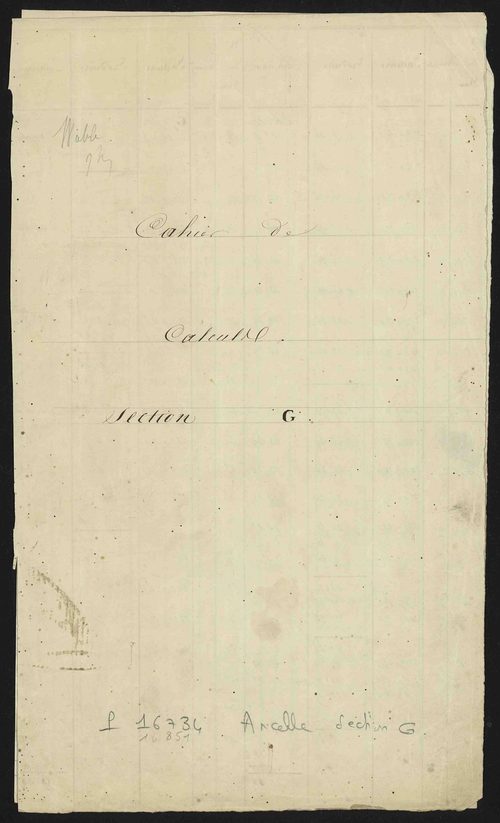 Cahier de
Calculs.
Section G.
P 16734 Arcelle Section G
16 851